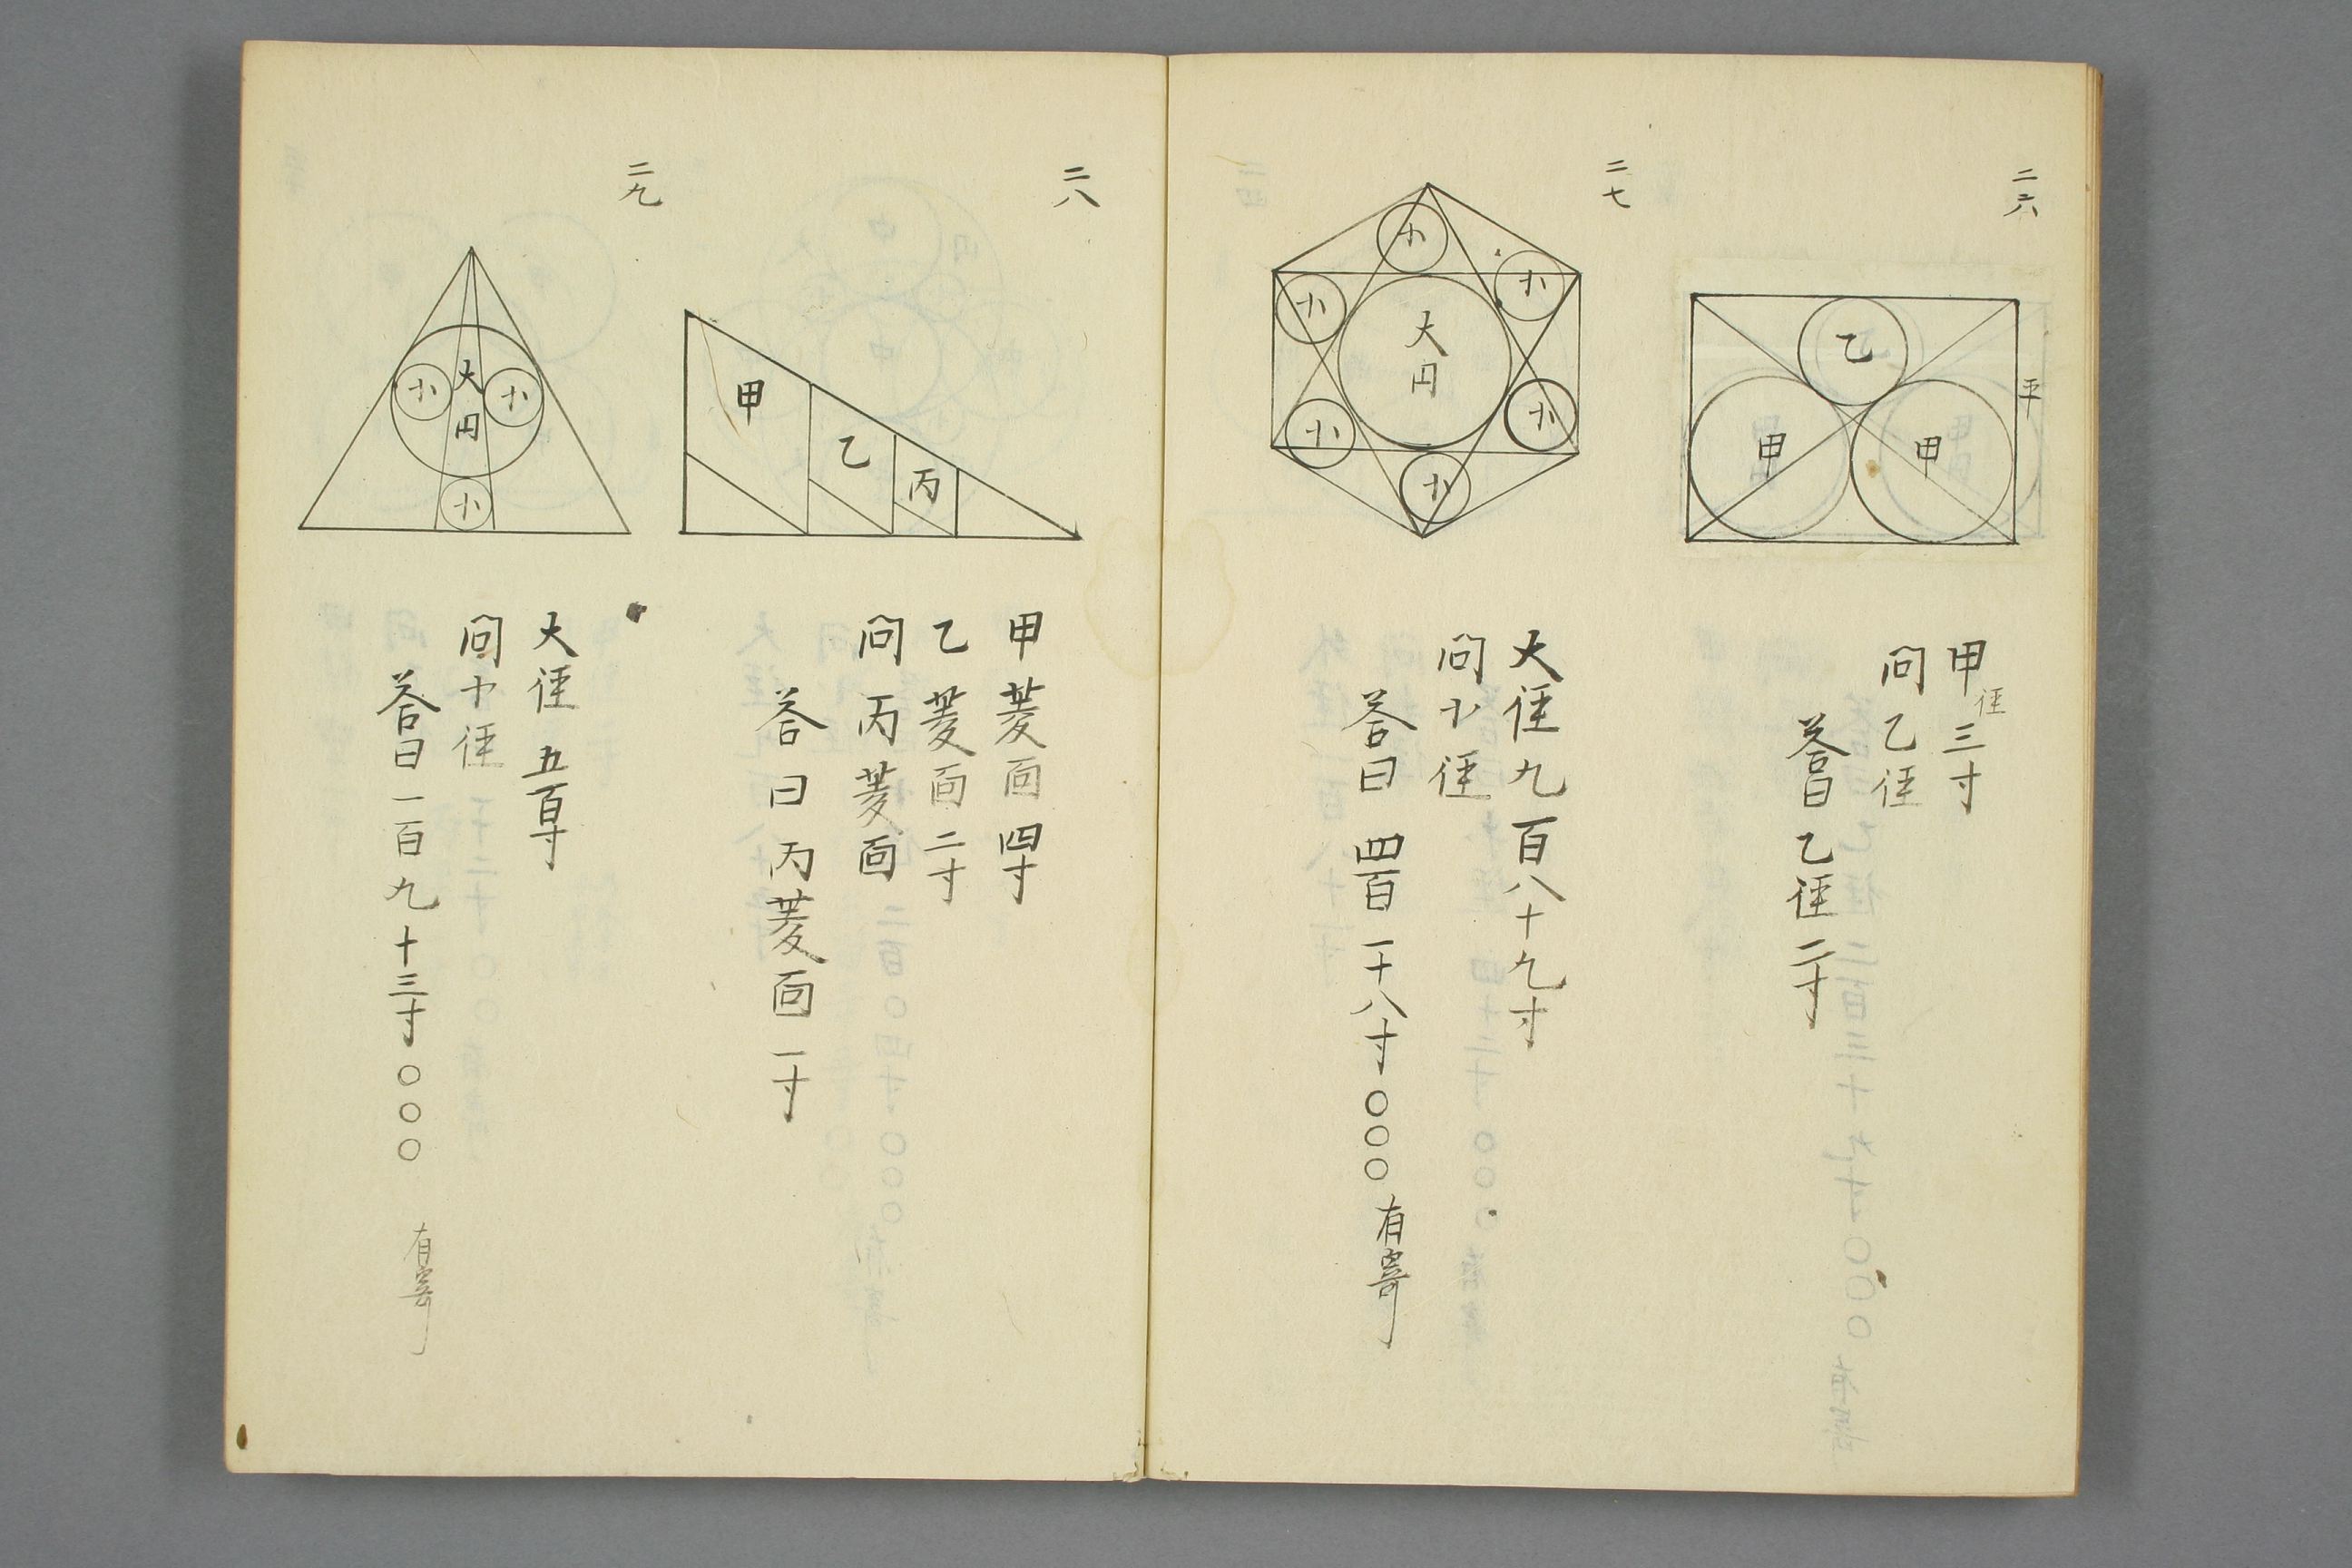 二六
乙
甲
甲
平
甲径三寸
問乙径
答曰乙径二寸
二七
小
小
小
大円
小
小
小
大径九百八十九寸
問小径
答曰四百一十八寸〇〇〇有寄
二八
甲
乙
丙
甲菱面四寸
乙菱面二寸
問丙菱面
答曰丙菱面一寸
二九
大円
小
小
小
大径五百寸
問小径
答曰一百九十三寸〇〇〇有寄